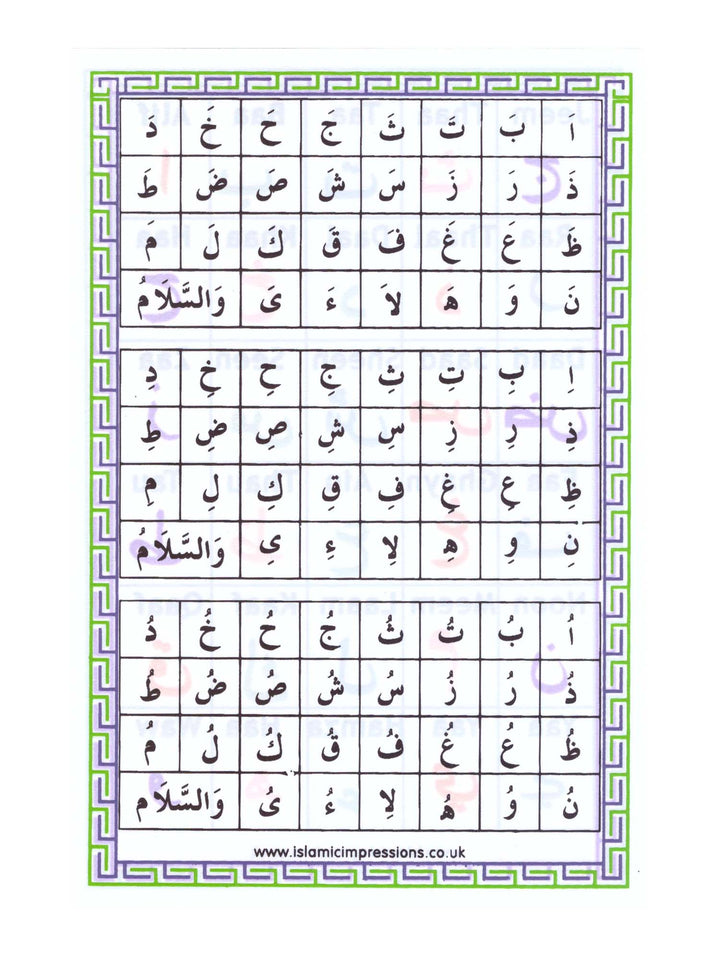 اَ بَ تَ ثَ جَ حَ خَ دَ
ذَ رَ زَ سَ شَ صَ ضَ طَ
ظَ عَ غَ فَ قَ كَ لَ مَ
نَ وَ هَ لاَ ءَ ىَ وَالسَّلَامُ
اِ بِ تِ ثِ جِ حِ خِ دِ
ذِ رِ زِ سِ شِ صِ ضِ طِ
ظِ عِ غِ فِ قِ كِ لِ مِ
نِ وِ هِ لاِ ءِ ىِ وَالسَّلَامُ
اُ بُ تُ ثُ جُ حُ خُ دُ
ذُ رُ زُ سُ شُ صُ ضُ طُ
ظُ عُ غُ فُ قُ كُ لُ مُ
نُ وُ هُ لاِ ءُ ىُ وَالسَّلَام
www.islamicimpressions.co.uk